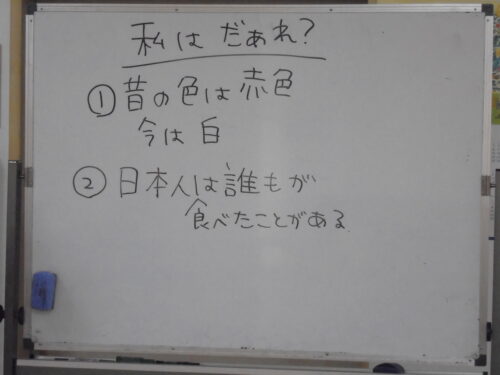 私はだぁれ?
①昔の色は赤色
今は白
②日本人は誰もが
食べたことがある